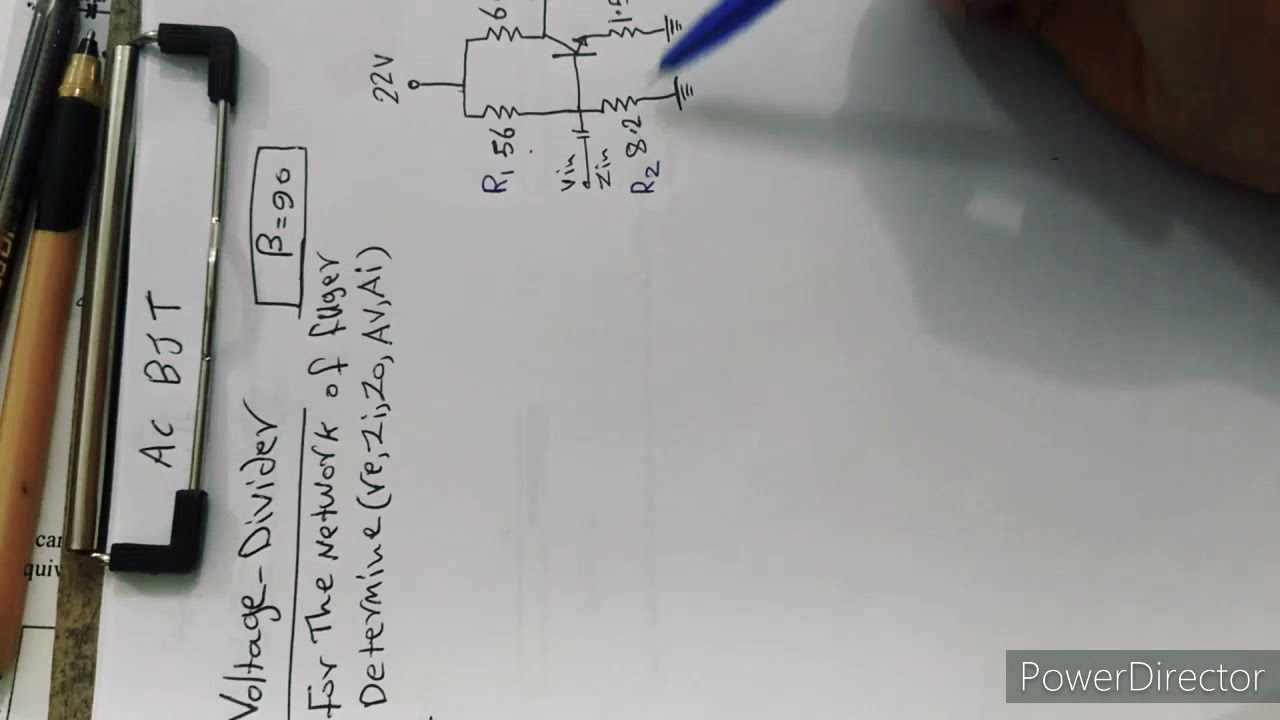 AC BJT
Voltage-Divider
β=90
For The Network of fuger
Determine (re, Zi, Zo, Av, Ai)
22V
R1 56
6
Vin
Zin
R2 8.2
1.5
can
quiv
PowerDirector